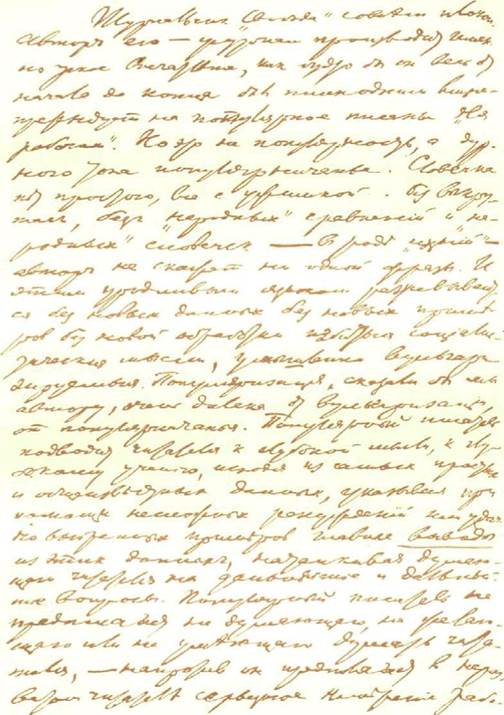 Журнальчик "Свобода" совсем плохой.
Автор его — журнал производит имен-
но такое впечатление, как будто бы он весь от
начала до конца был писан одним лицом —
претендует на популярное писание "для
рабочих". Но это не популярность, а дур-
ного тона популярничанье. Словечка
нет простого, все с ужимкой. Без выкру-
тас, без "народных" сравнений и "на-
родных" словечек — вроде "ихний" —
автор не скажет ни одной фразы. И
этим уродливым языком разжевывают-
ся без новых данных, без новых приме-
ров, без новой обработки избитые социали-
стические мысли, умышленно вульгари-
зируемые. Популяризация, сказали бы мы
автору, очень далека от вульгаризации,
от популярничанья. Популярный писатель
подводит читателя к глубокой мысли, к глу-
бокому учению, исходя из самых простых
и общеизвестных данных, указывая при
помощи несложных рассуждений или удач-
но выбранных примеров главные выводы
из этих данных, наталкивая думаю-
щего читателя на дальнейшие и дальней-
шие вопросы. Популярный писатель не
предполагает не думающего, не желаю-
щего или не умеющего думать чита-
теля, — напротив, он предполагает в нераз-
витом читателе серьезное намерение рабо-